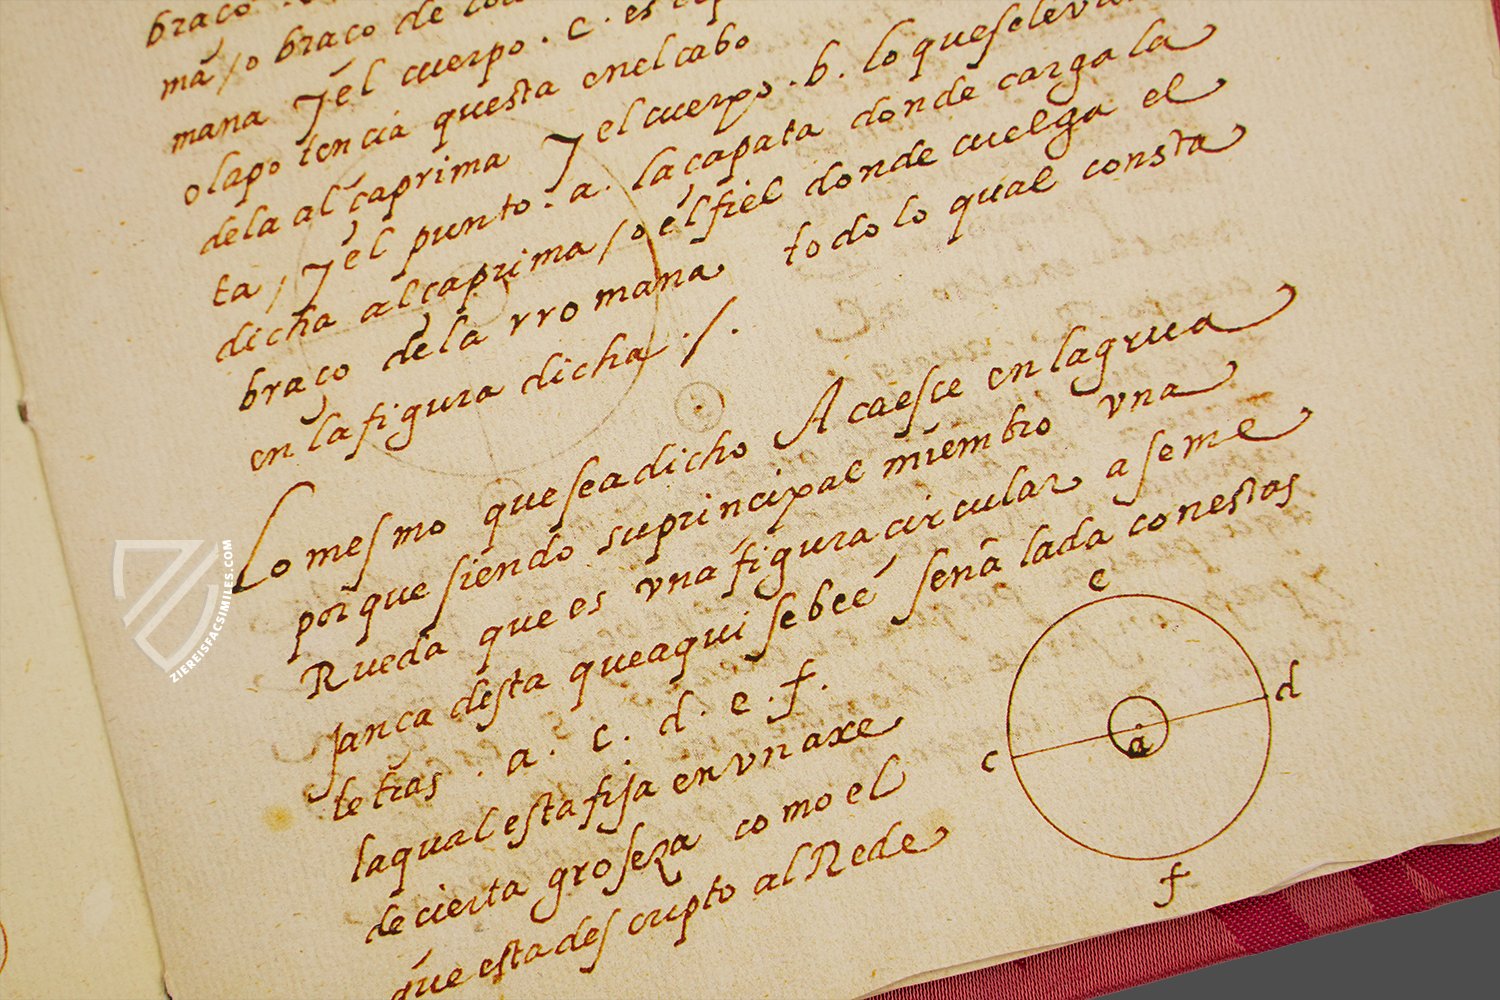 braço
ma / o braço de
mana y el cuerpo . c . es
o lapotencia questa enel cabo
dela alçaprima y el cuerpo . b . lo quese levan
ta , y el punto . a . la çapata donde carga la
dicha alçaprima / o el fiel donde cuelga el
braço dela rromana todo lo qual consta
en la figura dicha ./.
Lo mesmo que sea dicho Acaesce en la grua
porque siendo su principal miembro vna
Rueda que es vna figura circular a seme
janca desta que aqui se bee señalada con estas
letras . a . c . d . e . f .
laqual esta fija en vn axe
de cierta groseza como el
que esta descripto al Rede
e
d
a
c
f
ZIEREISFACSIMILES.COM